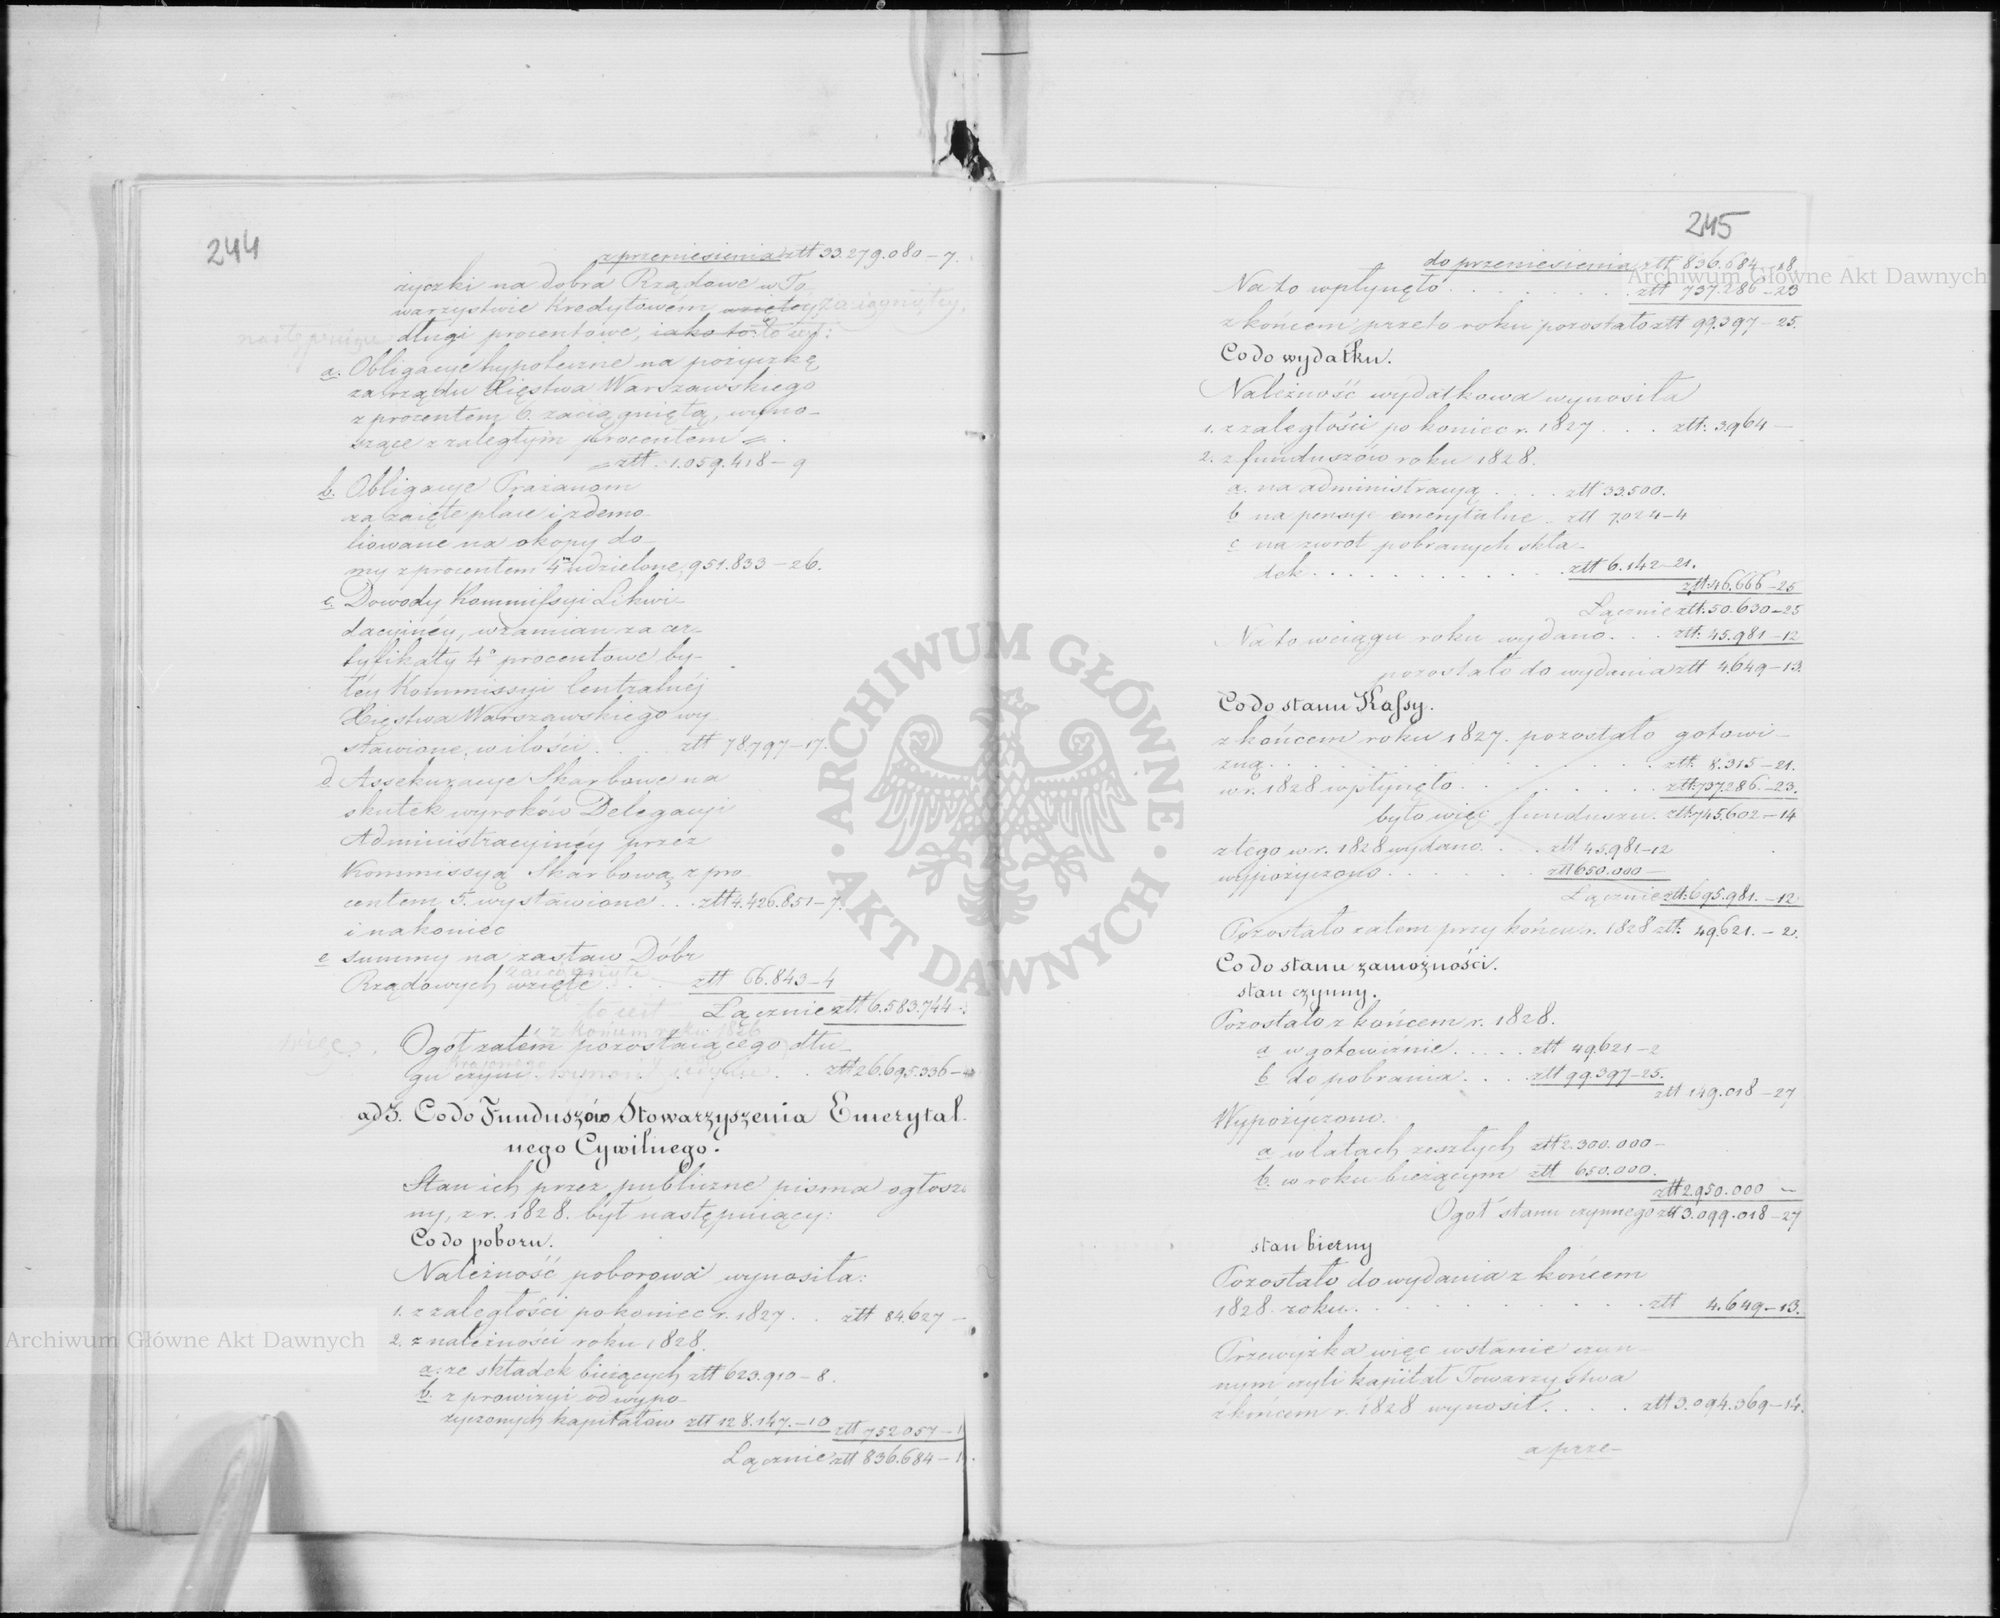 244
z przeniesienia złt 33.279.080 – 7.
życzki na dobra Rządowe w To
warzystwie Kredytowém wziętey zaciągniętey,
następujące długi procentowe, iako to: to iest:
a. Obligacye hypoteczne na pożyczkę
za rządu Xięstwa Warszawskiego
z procentem 6. zaciągniętą, wyno-
szące z zaległym procentem
złt. 1.059.418 – 9
b. Obligacye Prażanom
za zaięte place i zdemo-
liowane na okopy do-
my z procentem 4m udzielone, 951.833 – 26.
c. Dowody Kommissyi Likwi-
dacyinéy, w zamian za cer-
tyfikaty 4o procentowe by-
łéy Kommissyi Centralnéj
Xięstwa Warszawskiego wy-
stawione, w ilości . . . . złt 78.797 – 17.
d. Assekuracye Skarbowe na
skutek wyroków Delegacyi
Administracyinéy przez
Kommissyą Skarbową z pro-
centem 5. wystawione . . . złt 4.426.851 – 7.
i nakoniec
e summy na zastaw Dóbr
zaciągnięte
Rządowych wzięte . . . złt 66.843 – 4
to iest Łącznie złt 6.583.744 –
z końcem roku 1826
więc, Ogół zatém pozostaiącego dłu-
krajowego
gu czyni wynosi . . . złt 26.695.336 –
ad 3. Co do Funduszów Stowarzyszenia Emerytal-
nego Cywilnego.
Stan ich przez publiczne pisma ogłoszo
ny, z r. 1828. był następuiący:
Co do poboru.
Należność poborowa wynosiła:
1. z zaległości po koniec r. 1827 . . złt 84.627 –
2. z należności roku 1828.
a: ze składek bieżących złt 623.910 – 8.
b. z prowizyi od wypo-
życzonych kapitałów złt 128.147. – 10 złt 752.057 – 1
Łącznie złt 836.684 – 1
245
do przeniesienia złt 836.684 – 18
Na to wpłynęło . . . . . . . złt 737.286 – 23
z końcem przeto roku pozostało złt 99.397 – 25.
Co do wydatku.
Należność wydatkowa wynosiła
1. z zaległości po koniec r. 1827 . . . złt: 3.964 –
2. z funduszów roku 1828.
a. na administracyą . . . . złt 33.500.
b na pensye emerytalne . . złt 7.024 – 4
c na zwrot pobranych skła-
dek . . . . . . . . . . . złt 6.142 – 21.
złt: 46.666 – 25
Łącznie złt: 50.630 – 25
Na to w ciągu roku wydano . . . złt: 45.981 – 12
pozostało do wydania złt 4.649 – 13.
Co do stanu Kassy.
z końcem roku 1827. pozostało gotowi-
zną . . . . . . . . . . . . . . złt. 8.315 – 21.
w r. 1828 wpłynęło . . . . . . . złt: 737.286. – 23.
było więc funduszu. złt: 745.602 – 14
z tego w r. 1828 wydano . . . złt 45.981 – 12
wypożyczono . . . . . . . złt 650.000 –
Łącznie złt: 695.981. – 12
Pozostało zatem przy końcu r. 1828 złt. 49.621. – 2.
Co do stanu zamożności.
stan czynny.
Pozostało z końcem r. 1828.
a w gotowiźnie . . . . . złt 49.621 – 2
b. do pobrania . . . . złt 99.397 – 25.
złt 149.018 – 27
Wypożyczono.
a w latach zeszłych złt 2.300.000 –
b. w roku bieżącym złt 650.000.
złt 2.950.000 –
Ogół stanu czynnego złt 3.099.018 – 27
stan bierny
Pozostało do wydania z końcem
1828. roku . . . . . . . . . . . złt 4.649 – 13.
Przewyżka więc w stanie czyn-
nym czyli kapitał Towarzystwa
z końcem r. 1828 wynosił . . . . złt 3.094.369 – 14.
a prze-
Archiwum Główne Akt Dawnych
Archiwum Główne Akt Dawnych
ARCHIWUM GŁÓWNE · AKT DAWNYCH ·